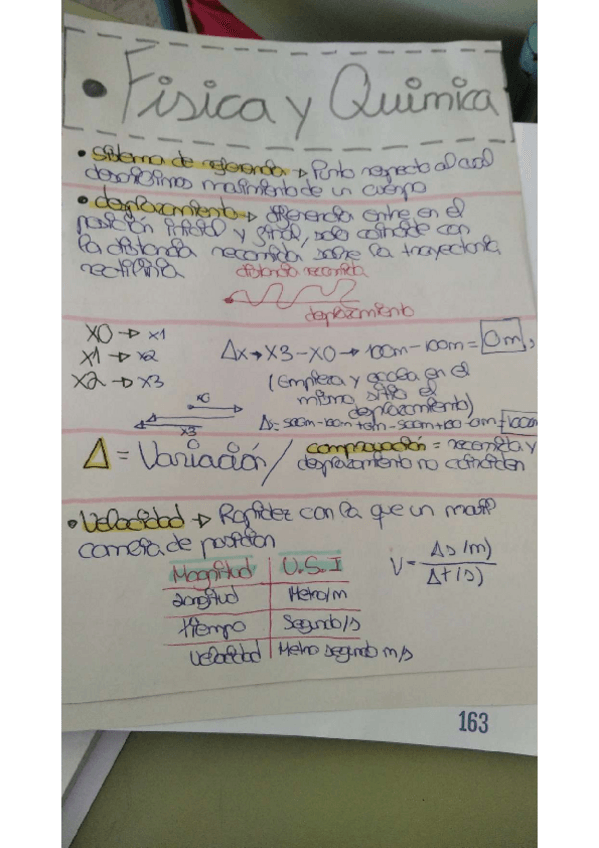 • Fisica y Quimica
• Sistema de referencia → Punto respecto al cual
describimos movimiento de un cuerpo
• desplazamiento → diferencia entre en el
posición inicial y final, solo coincide con
la distancia recorrida sobre la trayectoria
rectilinia
distancia recorrida
desplazamiento
X0 → X1
X1 → X2
X2 → X3
Δx → X3 - X0 → 100m - 100m = 0m,
(Empieza y acaba en el
mismo sitio el
desplazamiento)
X0
X3
Δ = Variación / comprovación = recorrida y
desplazamiento no coinciden
• Velocidad → Rapidez con la que un
de posición
Magnitud U.S.I
Longitud Metro/m
tiempo Segundo/s
Velocidad Metro segundo m/s
V = Δs (m) / Δt (s)
163